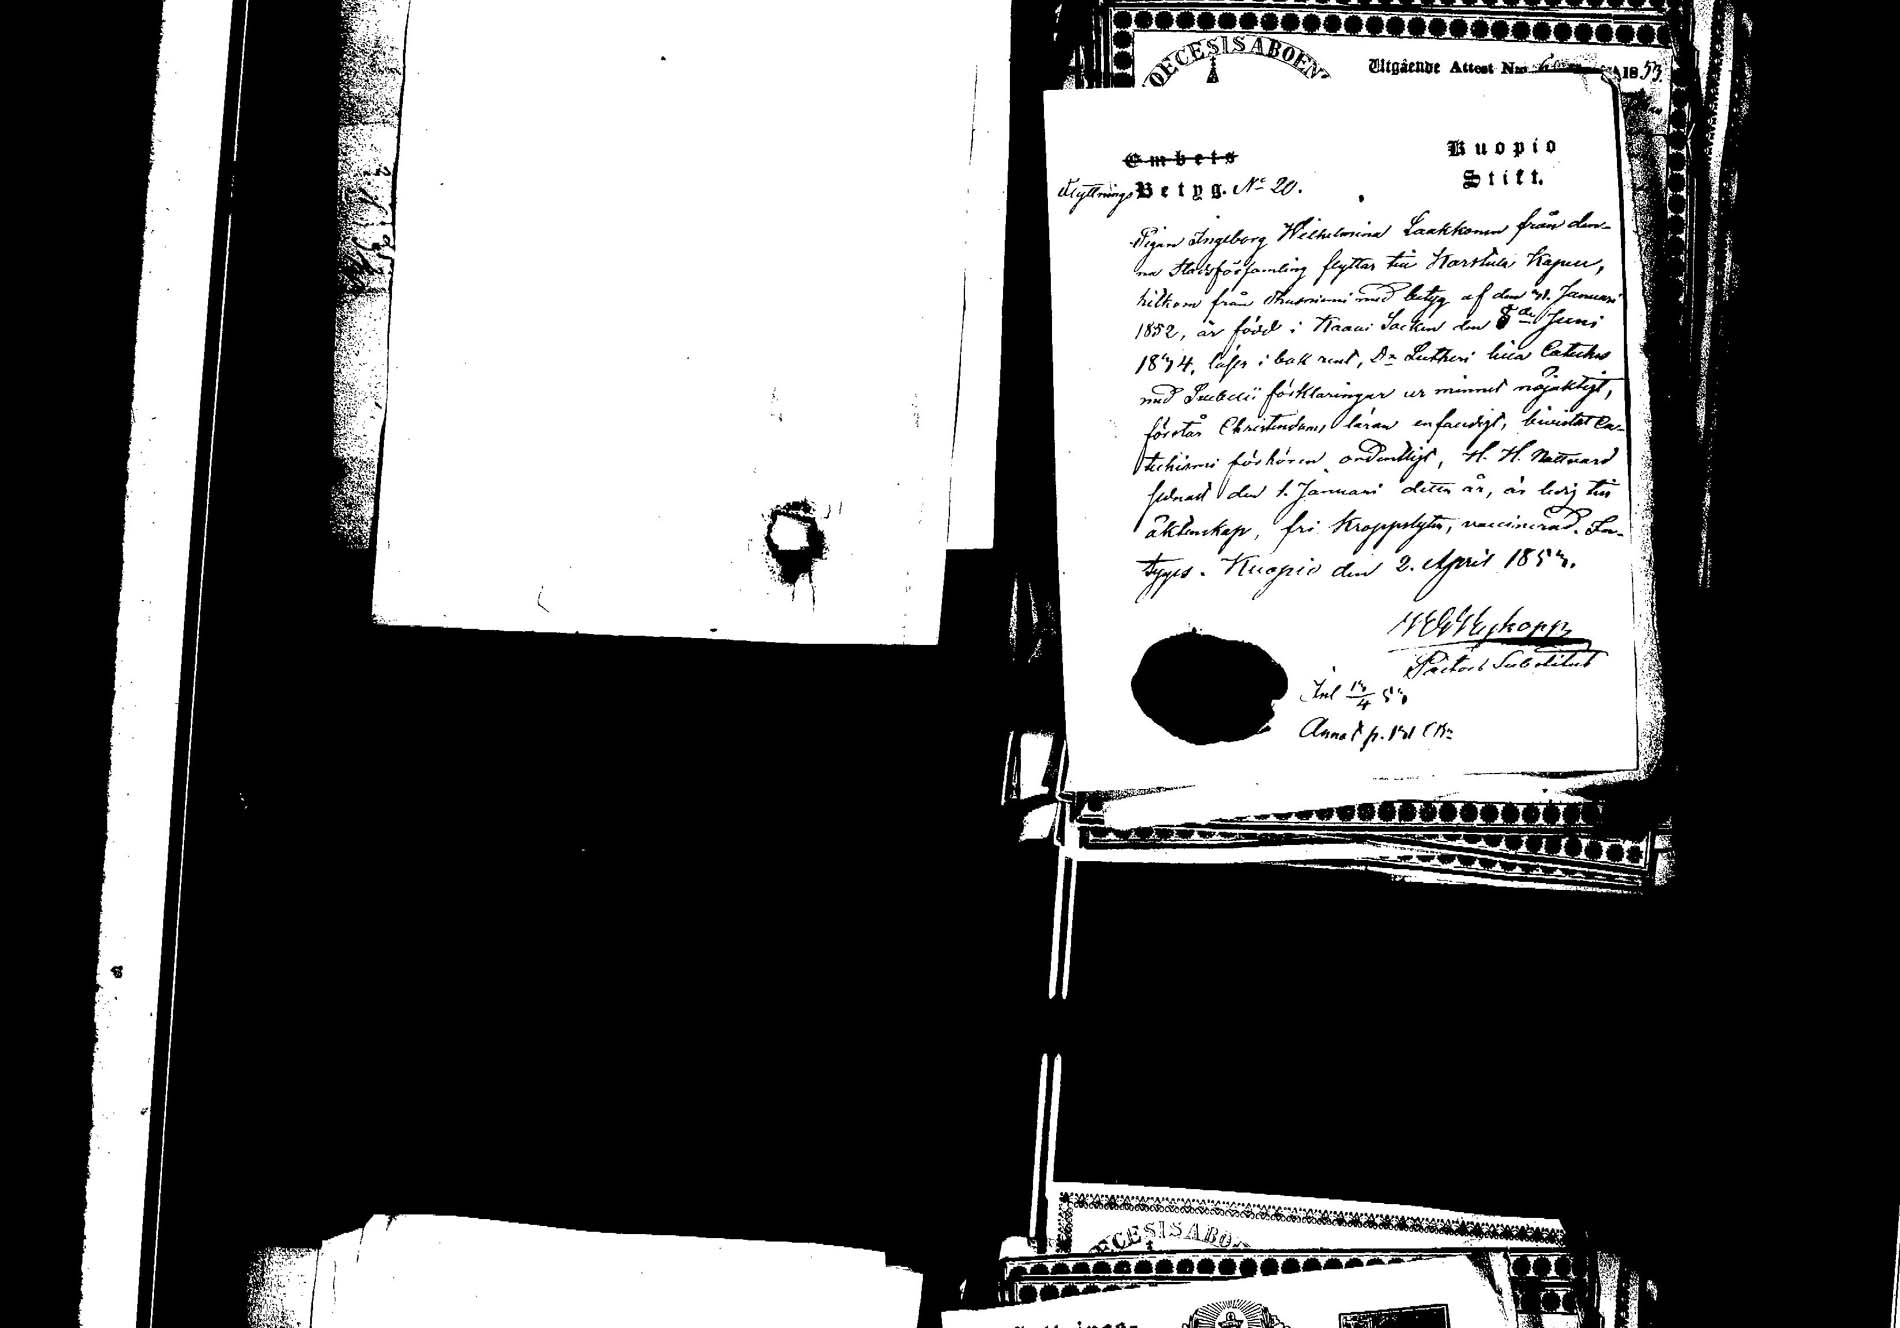 OECESIS ABOEN
Utgående Attest No 1853
Embets
Kuopio
Flyttnings Betyg. No 20.
Stift.
Pigan Ingeborg Wilhelmina Laakkonen från den-
na Stadsförsamling flyttar till Karstula Kapell,
hitkom från med betyg af den 31. Januari
1852, är född i Kaavi Socken den 8de Juni
1834, läser i bok rent, Dr Lutheri lilla Cateches
med Svebelii förklaringar ur minnet nöjaktigt,
förstår Christendoms läran enfaldigt, bivistat Ca-
techismi förhören ordentligt, H. H. Nattvard
senast den 1. Januari detta år, är ledig till
äktenskap, fri Kroppslyte, vaccinerad. In-
tygas. Kuopio den 2. April 1853.
Pastors Substitut
Inl 13/4 53
Annot p. 131
ECESIS ABO